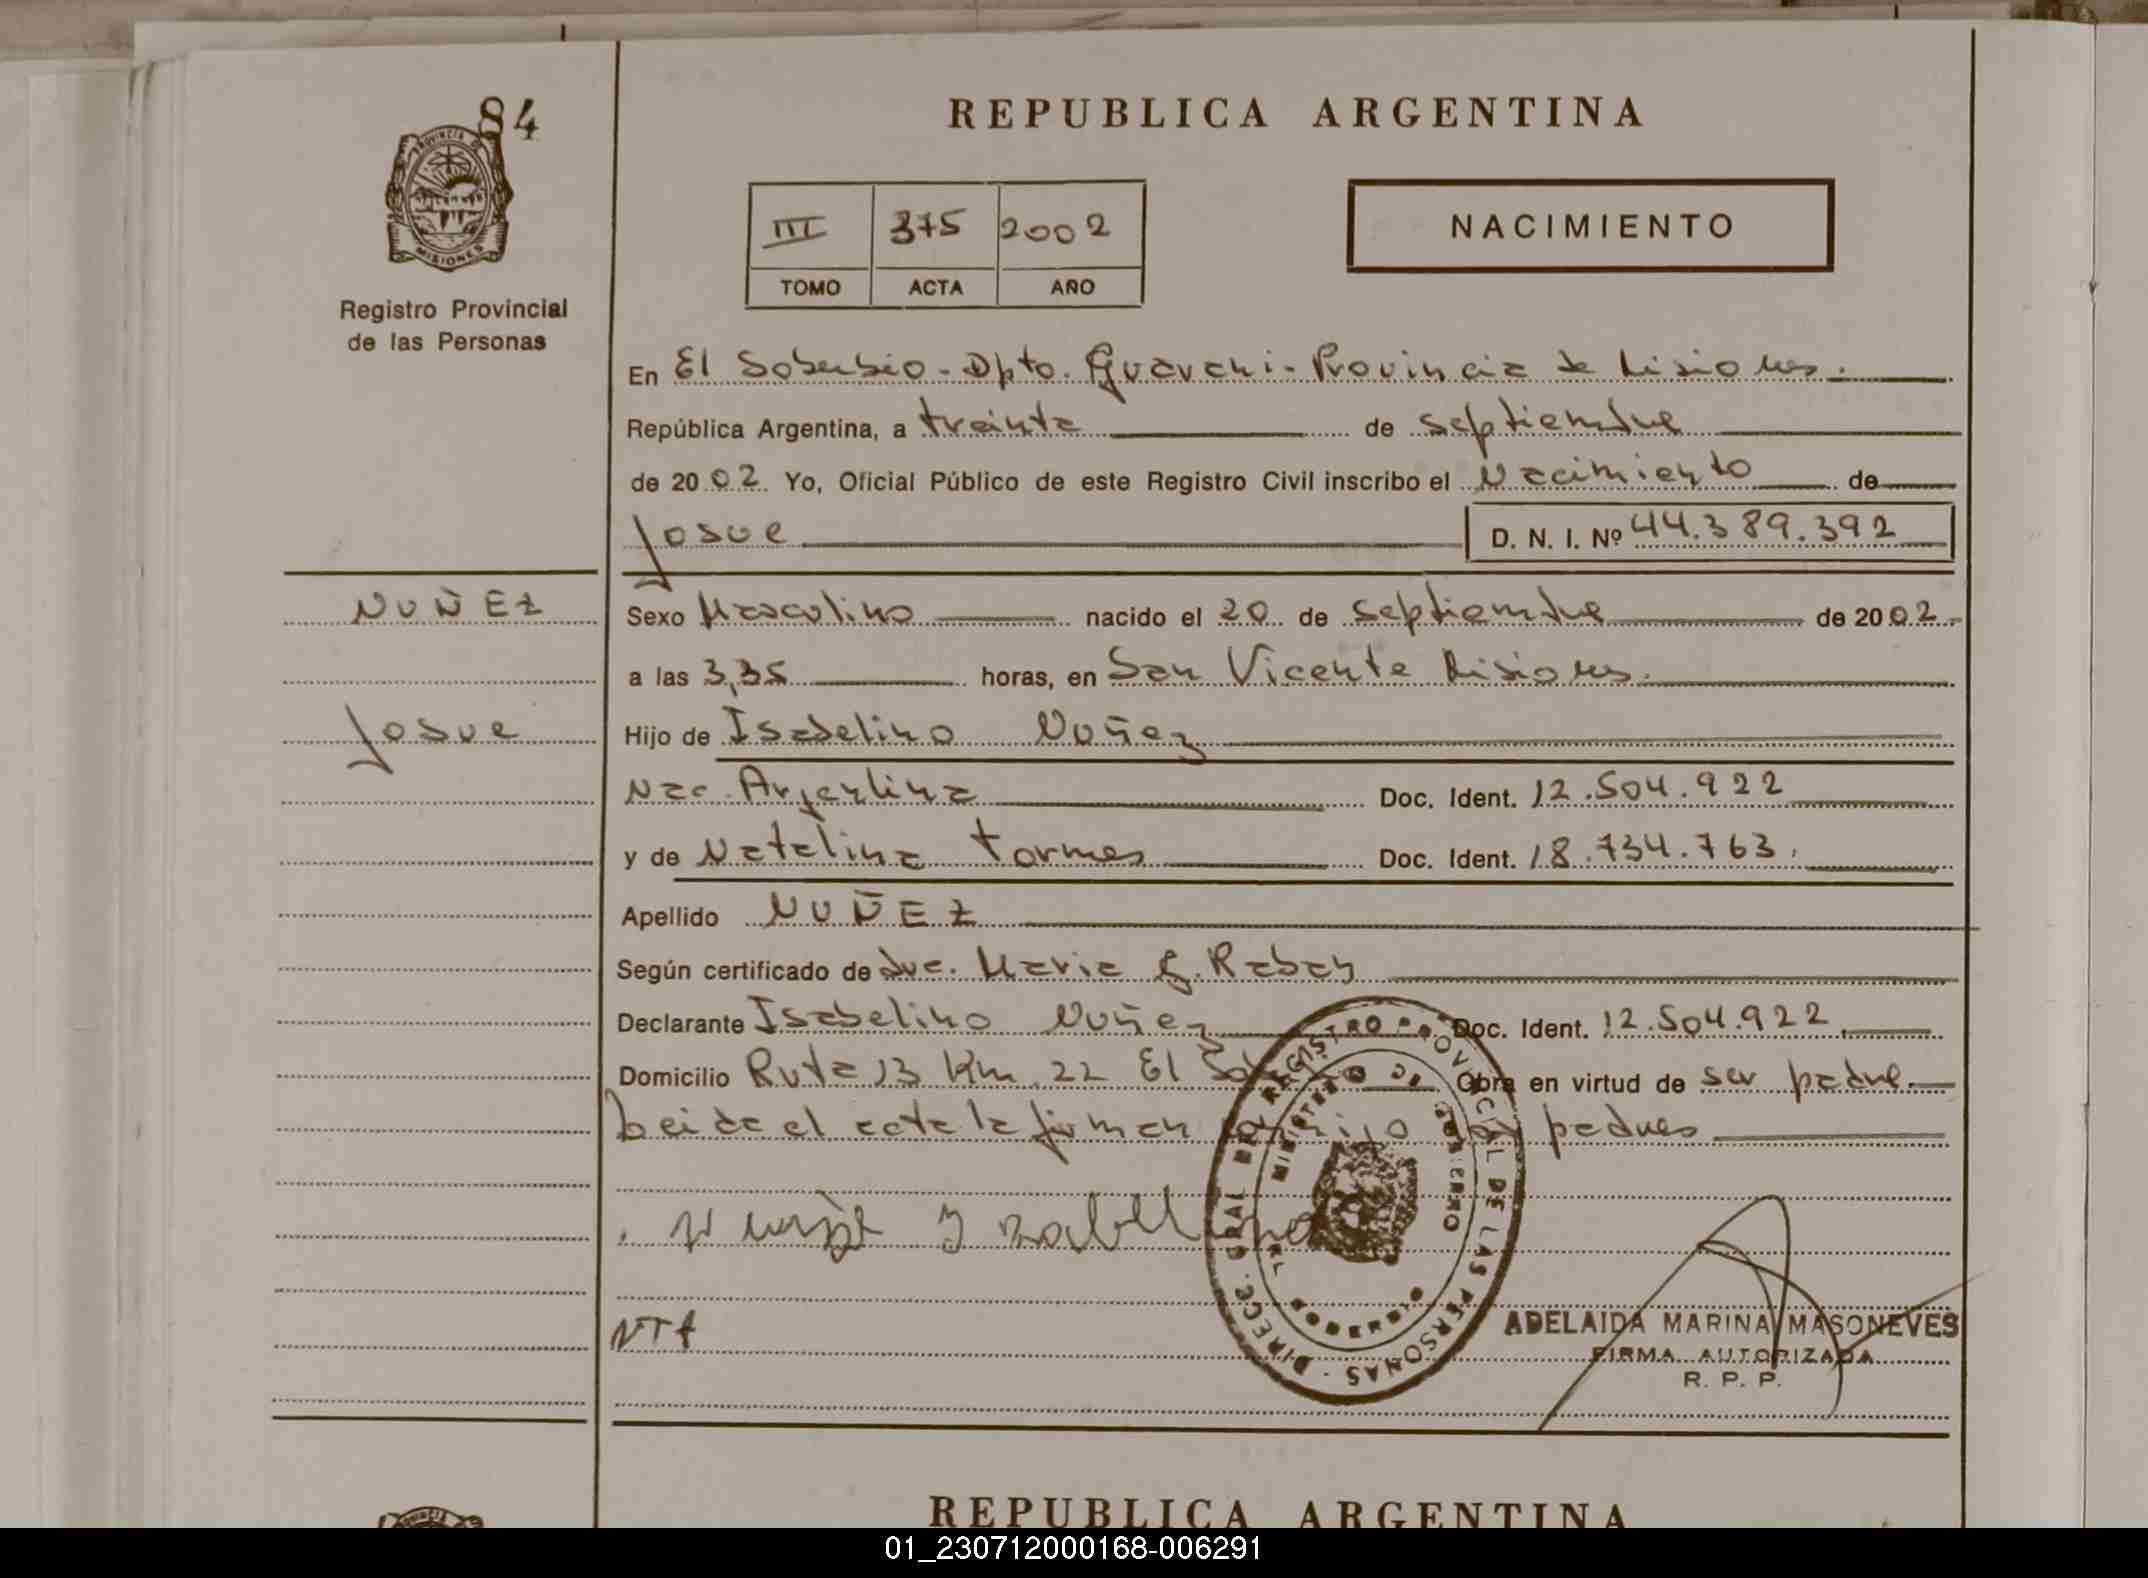 84
PROVINCIA DE
MISIONES
Registro Provincial
de las Personas
REPUBLICA ARGENTINA
III 375 2002
TOMO ACTA AÑO
NACIMIENTO
En El Soberbio - Dpto. Guarani - Provincia de Misiones.
República Argentina, a treinta de septiembre
de 2002 Yo, Oficial Público de este Registro Civil inscribo el Nacimiento de
Josue D. N. I. Nº 44.389.392
NUÑEZ
Sexo Masculino nacido el 20 de septiembre de 2002.
a las 3,35 horas, en San Vicente Misiones.
Josue
Hijo de Isabelino Nuñez
Nac. Argentina Doc. Ident. 12.504.922
y de Natalina Tormes Doc. Ident. 18.734.763.
Apellido NUÑEZ
Según certificado de Maria G. Raban
Declarante Isabelino Nuñez Doc. Ident. 12.504.922
Domicilio Ruta 13 Km. 22 El Soberbio Obra en virtud de ser padre.
Leida el acta la firman conmigo los padres
DIRECC. GRAL DEL REGISTRO PROVINCIAL DE LAS PERSONAS
MINISTERIO DE GOBIERNO
EL SOBERBIO
NTA
ADELAIDA MARINA MASONEVES
FIRMA AUTORIZADA
R. P. P.
REPUBLICA ARGENTINA
01_230712000168-006291